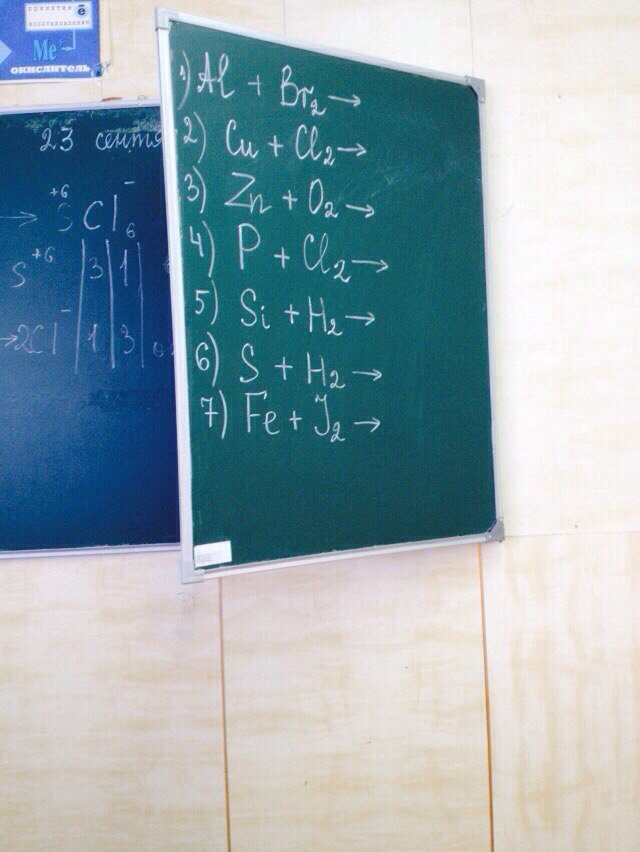 принятие ē
восстановление
Me
окислитель
23 сентя
+6 -
→ SCl₆
S⁺⁶ |3|1|
→2Cl⁻ |1|3|
1) Al + Br₂ →
2) Cu + Cl₂ →
3) Zn + O₂ →
4) P + Cl₂ →
5) Si + H₂ →
6) S + H₂ →
7) Fe + J₂ →